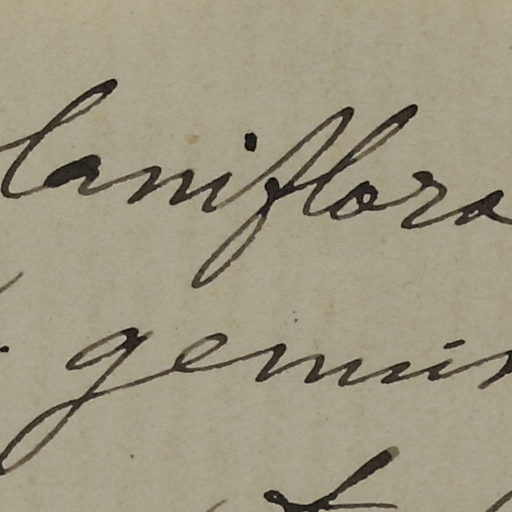 laniflora
gemin